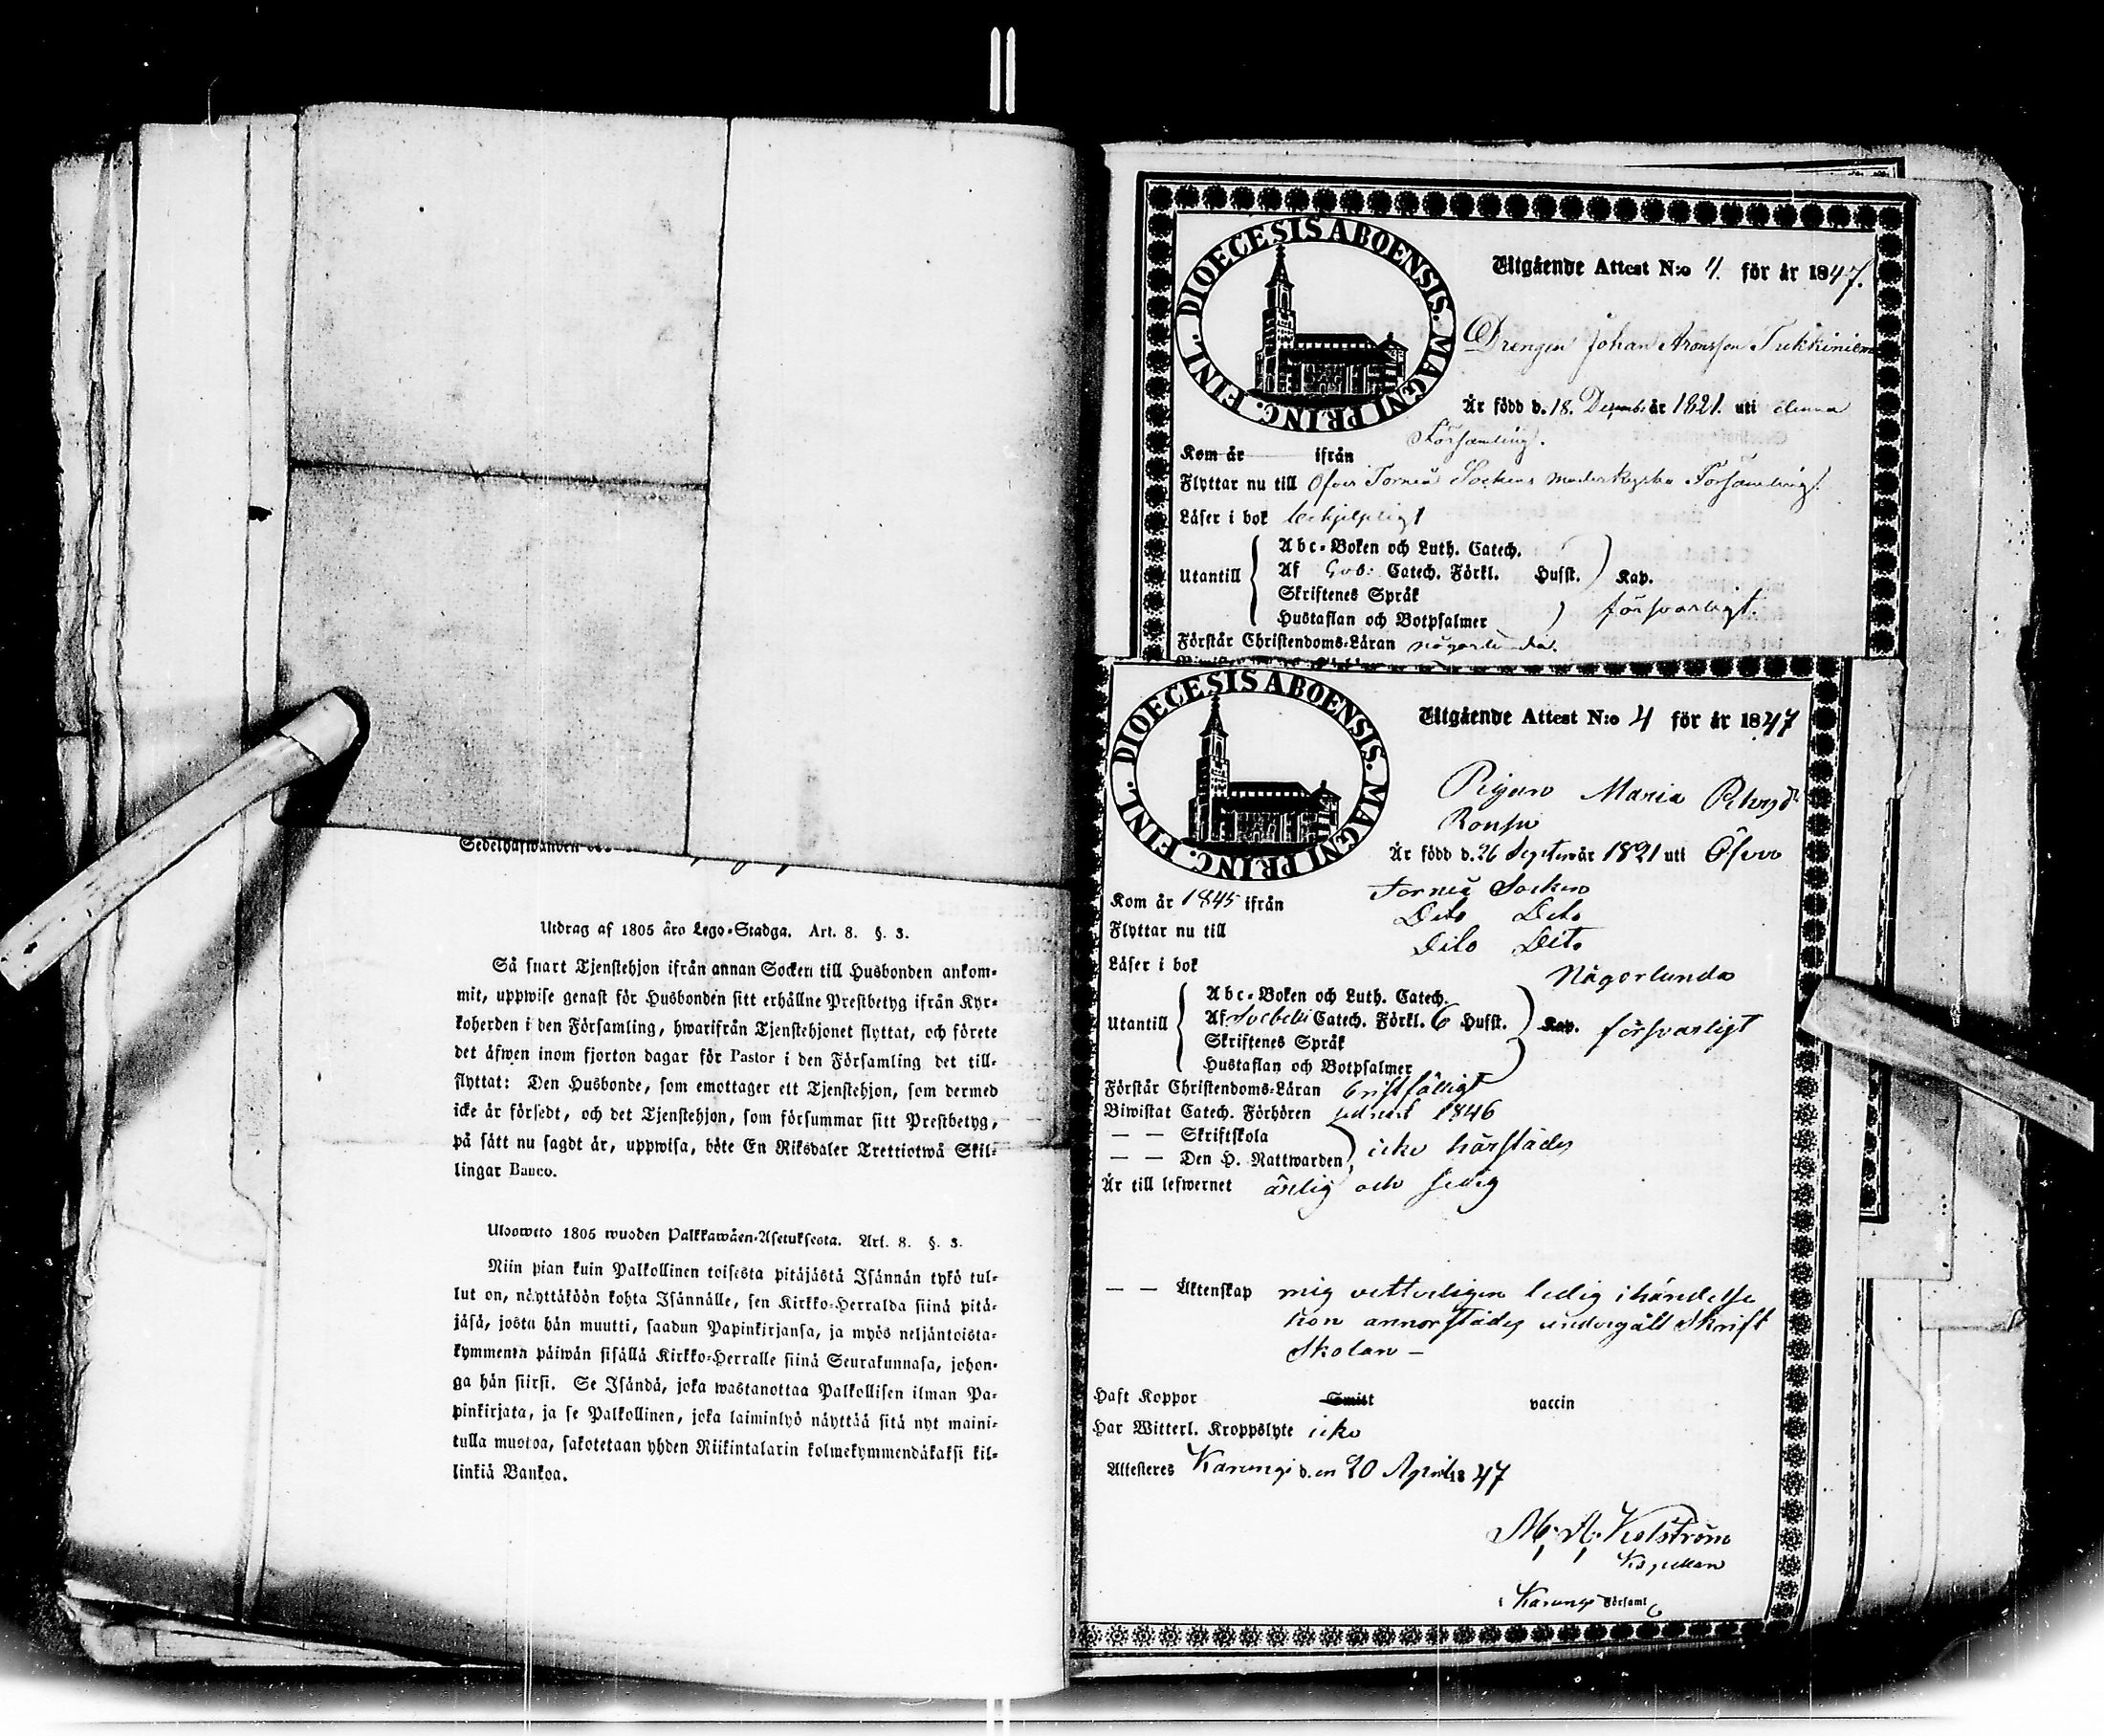 Sedelhafwanden
Utdrag af 1805 års Lego-Stadga. Art. 8. §. 3.
Så snart Tjenstehjon ifrån annan Socken till Husbonden ankom-
mit, uppwise genast för Husbonden sitt erhållne Prestbetyg ifrån Kyr-
koherden i den Församling, hwarifrån Tjenstehjonet flyttat, och förete
det äfwen inom fjorton dagar för Pastor i den Församling det till-
flyttat: Den Husbonde, som emottager ett Tjenstehjon, som dermed
icke är försedt, och det Tjenstehjon, som försummar sitt Prestbetyg,
på sätt nu sagdt är, uppwisa, böte En Riksdaler Trettiotwå Skil-
lingar Banco.
Ulosweto 1805 wuoden Palkkawäen-Asetuksesta. Art. 8. §. 3.
Niin pian kuin Palkollinen toisesta pitäjästä Isännän tykö tul-
lut on, näyttäköön kohta Isännälle, sen Kirkko-Herralda siinä pitä-
jäsä, josta hän muutti, saadun Papinkirjansa, ja myös neljäntoista-
kymmenen päiwän sisällä Kirkko-Herralle siinä Seurakunnasa, johon-
ga hän siirsi. Se Isändä, joka wastanottaa Palkollisen ilman Pa-
pinkirjata, ja se Palkollinen, joka laiminlyö näyttää sitä nyt maini-
tulla muotoa, sakotetaan yhden Riikintalarin kolmekymmendäkaksi kil-
linkiä Bankoa.
DIOECESIS ABOENSIS. MAGNI PRINC. FINL.
Utgående Attest N:o 4. för år 1847.
Drengen Johan Aronsson
Är född d. 18. Decemb: år 1821. uti denna
Församling.
Kom år ifrån
Flyttar nu till Öfver Torneå Sockens moderkyrko Församling.
Läser i bok behjelpligt
Abc-Boken och Luth. Catech.
Utantill Af Catech. Förkl. Husst. Kap.
Skriftenes Språk försvarligt.
Hustaflan och Botpsalmer
Förstår Christendoms-Läran någorlunda.
DIOECESIS ABOENSIS. MAGNI PRINC. FINL.
Utgående Attest N:o 4 för år 1847
Pigan Maria
Är född d. 26 September år 1821 uti Öfver
Torneå Socken
Kom år 1845 ifrån Dito Dito
Flyttar nu till Dito Dito
Läser i bok Någorlunda
Abc-Boken och Luth. Catech.
Utantill Af Svebelii Catech. Förkl. 6 Husst. Kap. försvarligt
Skriftenes Språk
Hustaflan och Botpsalmer
Förstår Christendoms-Läran bristfälligt
Biwistat Catech. Förhören sednast 1846
— — Skriftskola
— — Den H. Nattwarden icke härstädes
Är till lefwernet ärlig och sedig
— — Äktenskap mig vetterligen ledig ihändelse
hon annorstädes undergått Skrift
Skolan —
Haft Koppor Smitt vaccin
Har Witterl. Kroppslyte icke
Attesteras Karungi d.en 20 April 1847
Kapellan
i Karungi Församl